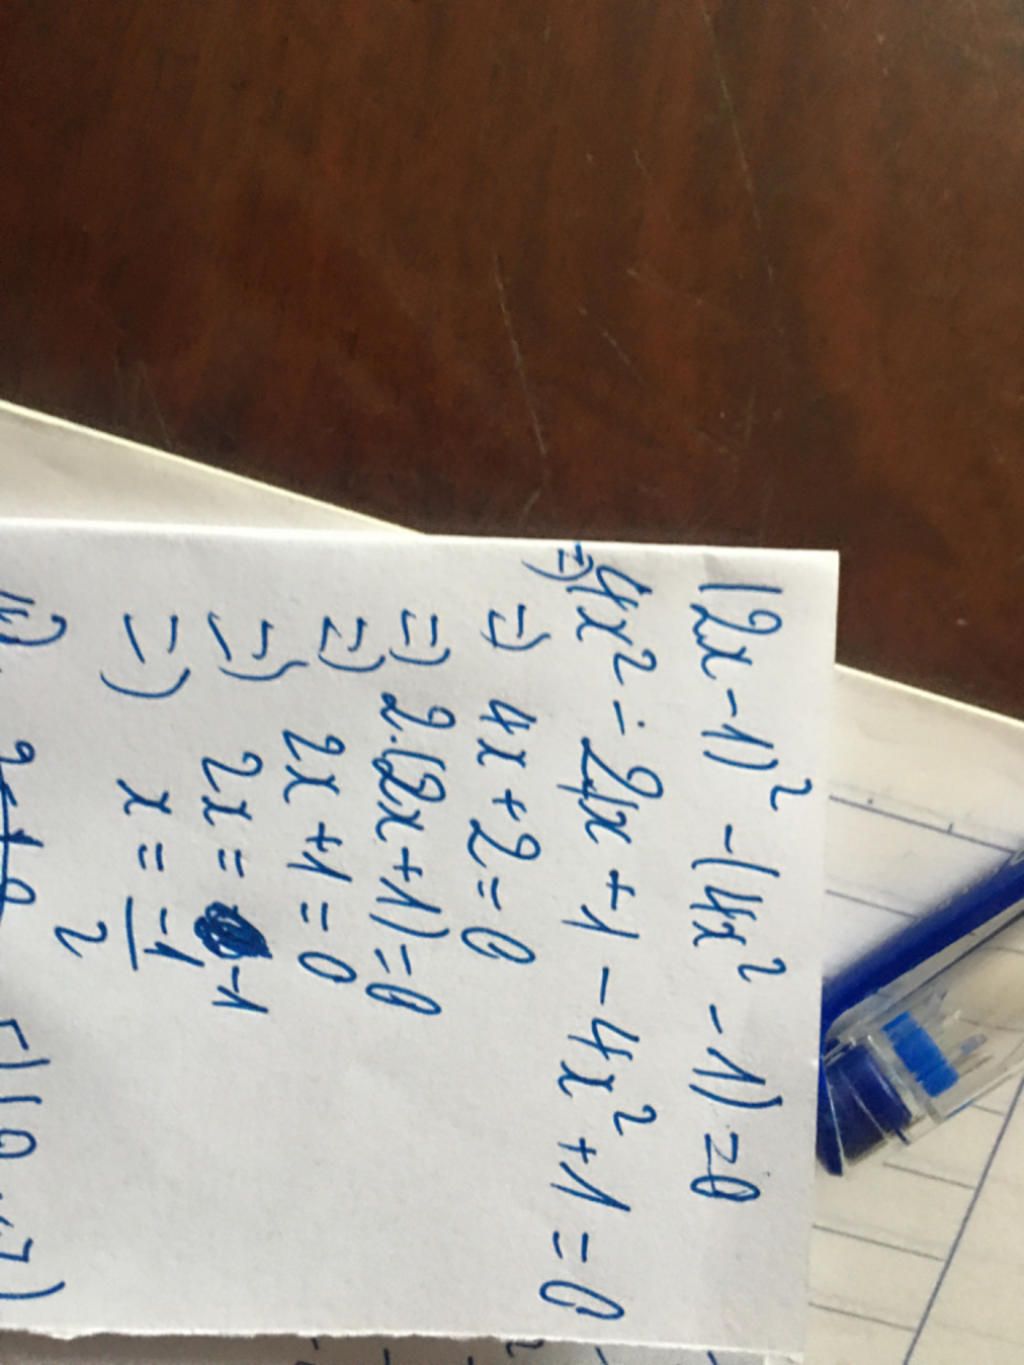 (2x-1)² -(4x² -1) =0
=) 4x² - 4x +1 -4x² +1 =0
=) 4x+2=0
=) 2.(2x+1)=0
=) 2x+1=0
=) 2x= -1
=) x= -1/2